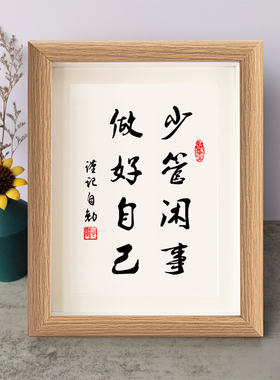 少管闲事
做好自己
谨记自勉